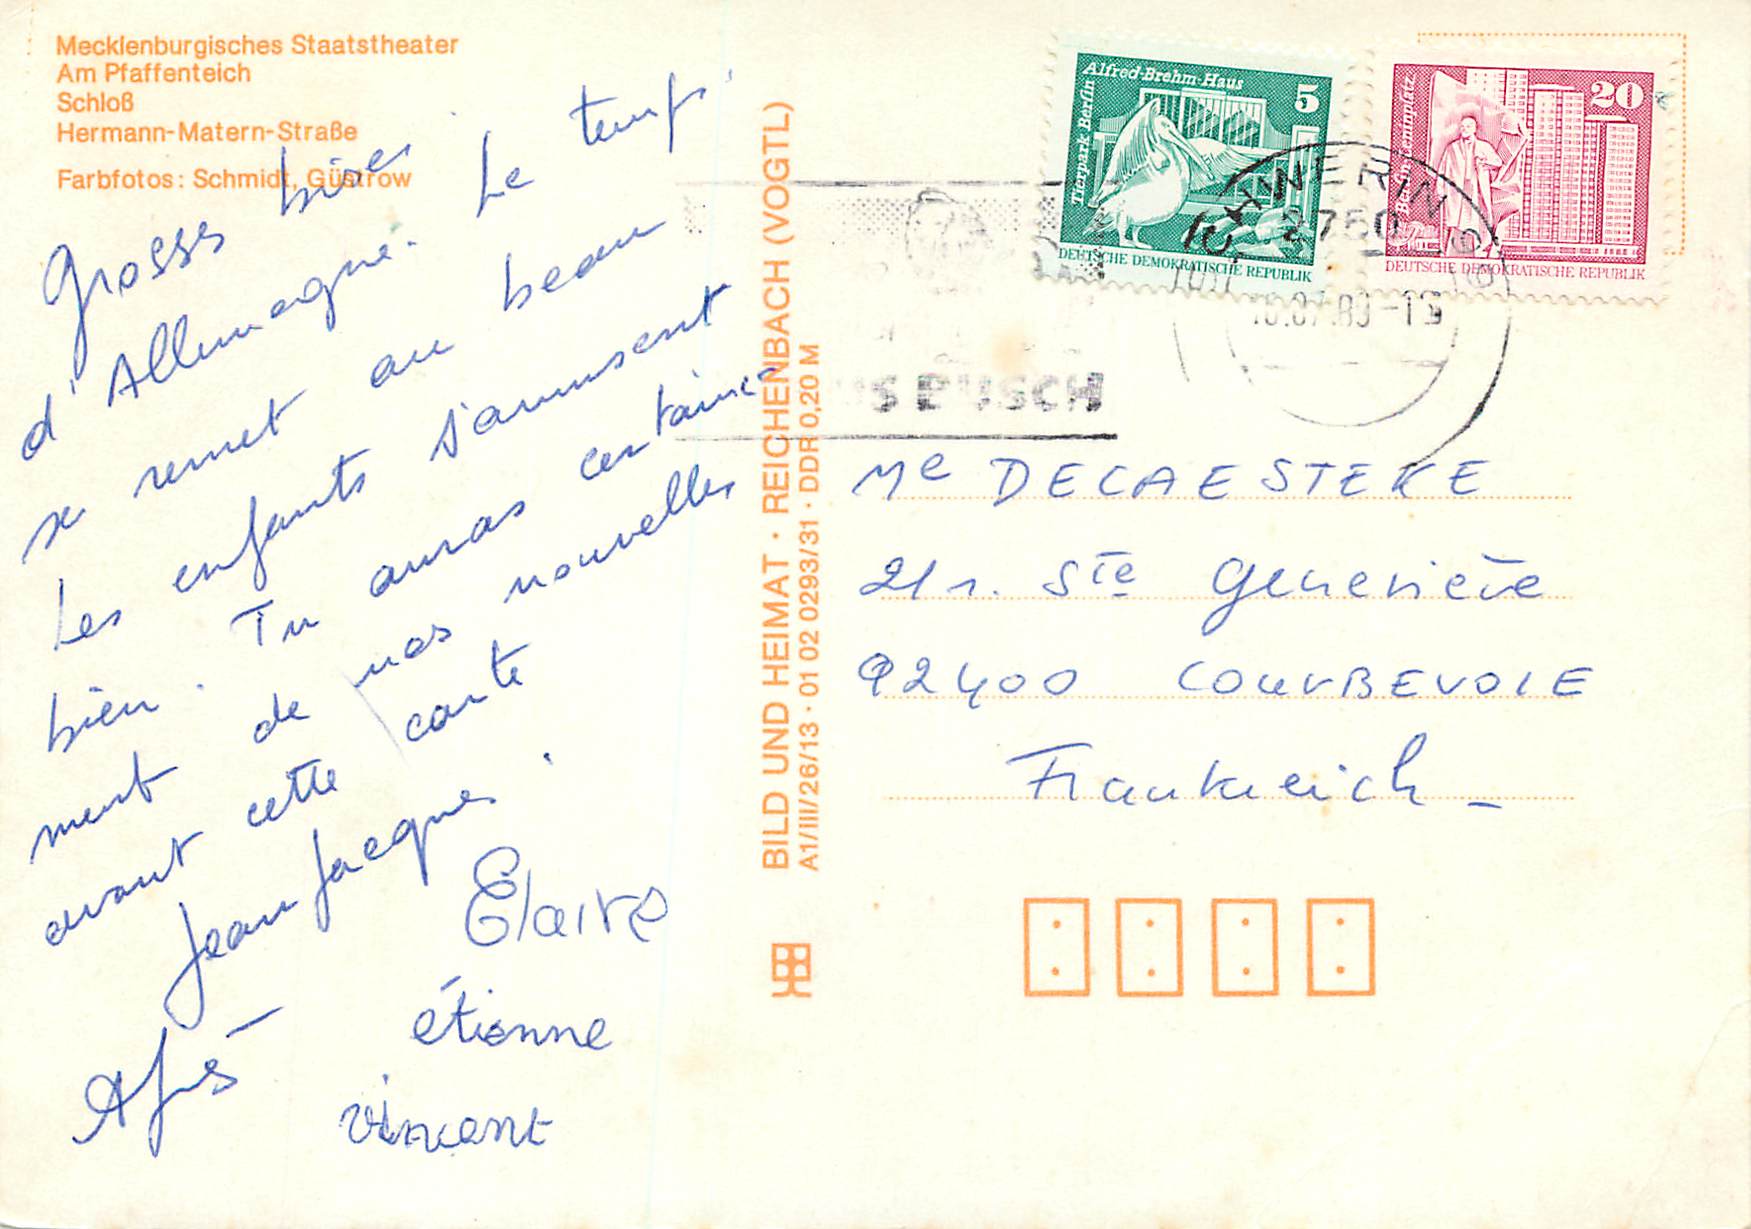 Mecklenburgisches Staatstheater
Am Pfaffenteich
Schloß
Hermann-Matern-Straße
Farbfotos: Schmidt, Güstrow
Grosses bises
d'Allemagne. Le temps
se remet au beau
Les enfants s'amusent
bien. Tu auras certaine
ment de nos nouvelles
avant cette carte
Jean Jacques.
Claire
étienne
vincent
BILD UND HEIMAT · REICHENBACH (VOGTL)
A1/III/26/13 · 01 02 0293/31 · DDR 0,20 M
Alfred-Brehm-Haus
Tierpark Berlin
5
DEUTSCHE DEMOKRATISCHE REPUBLIK
20
Berlin, Leninplatz
DEUTSCHE DEMOKRATISCHE REPUBLIK
SCHWERIN
2750
BUSCH
Me DECAESTEKE
21 r. Ste Geneviève
92400 COURBEVOIE
Frankreich